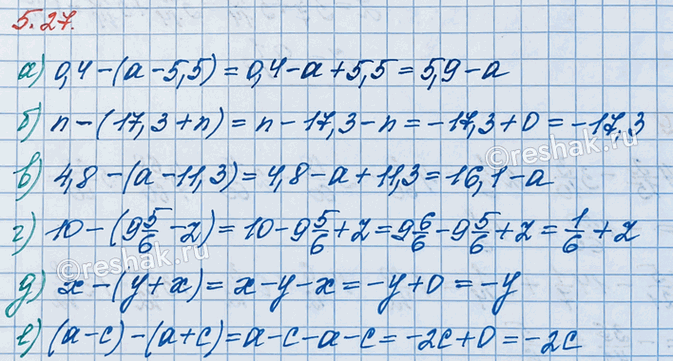 5.27.
а) 0,4-(а-5,5)=0,4-а+5,5=5,9-а
б) n-(17,3+n)=n-17,3-n=-17,3+0=-17,3
в) 4,8-(а-11,3)=4,8-а+11,3=16,1-а
г) 10-(9 5/6-z)=10-9 5/6+z=9 6/6-9 5/6+z=1/6+z
д) x-(y+x)=x-y-x=-y+0=-y
е) (a-c)-(a+c)=a-c-a-c=-2c+0=-2c
©reshak.ru
©reshak.ru